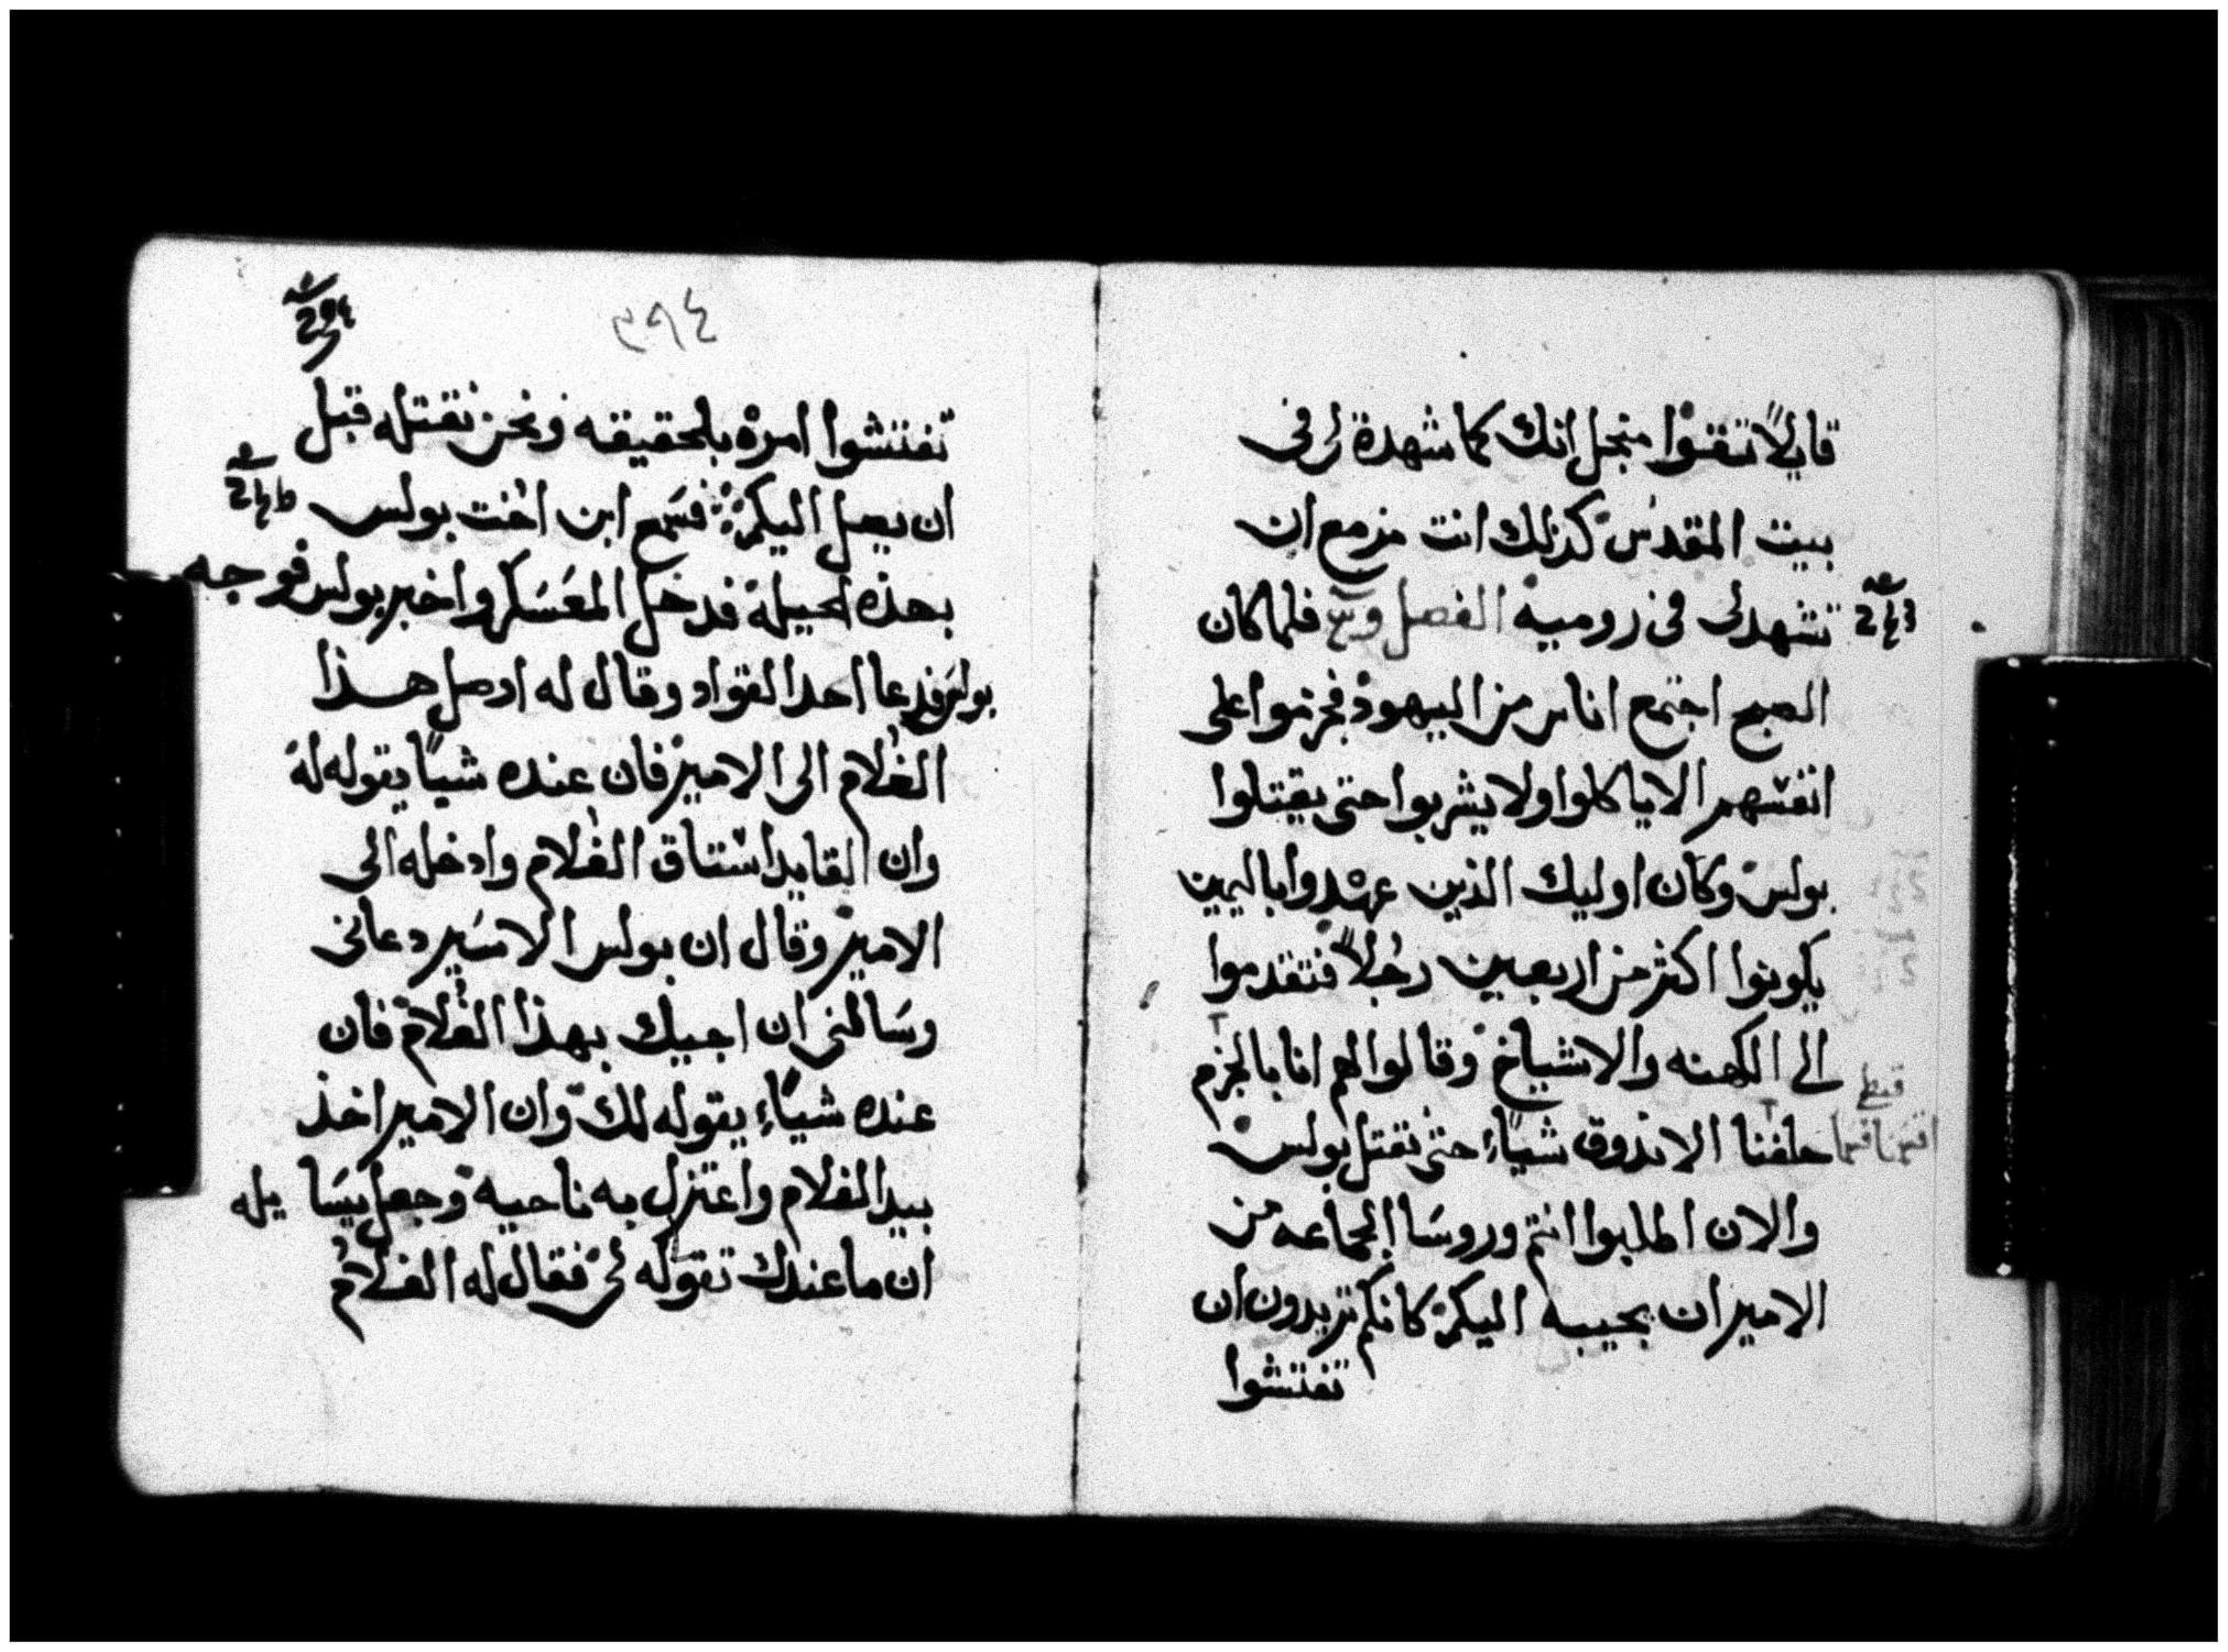 قايلاً تقوا منجل انك كما شهدة لى فى
بيت المقدس كذلك انت مزمع ان
تشهد لى فى روميه الفصل فلما كان
الصبح اجتمع اناس من اليهود فجزموا على
انفسهم الا ياكلوا ولا يشربوا حتى يقتلوا
بولس وكان اوليك الذين عهدوا باليمين
يكونوا اكثر من اربعين رجلاً فتقدموا
الى الكهنه والاشياخ وقالوا لهم انا بالجزم
قبطى
اقسمنا قسما حلفنا الا نذوق شياً حتى نقتل بولس
والان اطلبوا انتم وروسا الجماعه من
الامير ان يجيبه اليكم كانكم تريدون ان
تفتشوا
٣٩٤
تفتشوا امره بلحقيقه ونحن نقتله قبل
ان يصل اليكم فسمع ابن اخت بولس
بهذه الحيله فدخل المعسكر واخبر بولس فوجه
بولس فدعا احد القواد وقال له اوصل هذا
الغلام الى الامير فان عنده شياً يقوله له
وان القايد استاق الغلام وادخله الى
الامير وقال ان بولس الاسير دعانى
وسالنى ان اجيك بهذا الغلام فان
عنده شياً يقوله لك وان الامير اخذ
بيد الغلام واعتزل به ناحيه وجعل يسايله
ان ما عندك تقوله لى فقال له الغلام